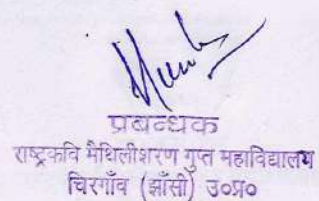 प्रबन्धक
राष्ट्रकवि मैथिलीशरण गुप्त महाविद्यालय
चिरगाँव (झाँसी) उ०प्र०